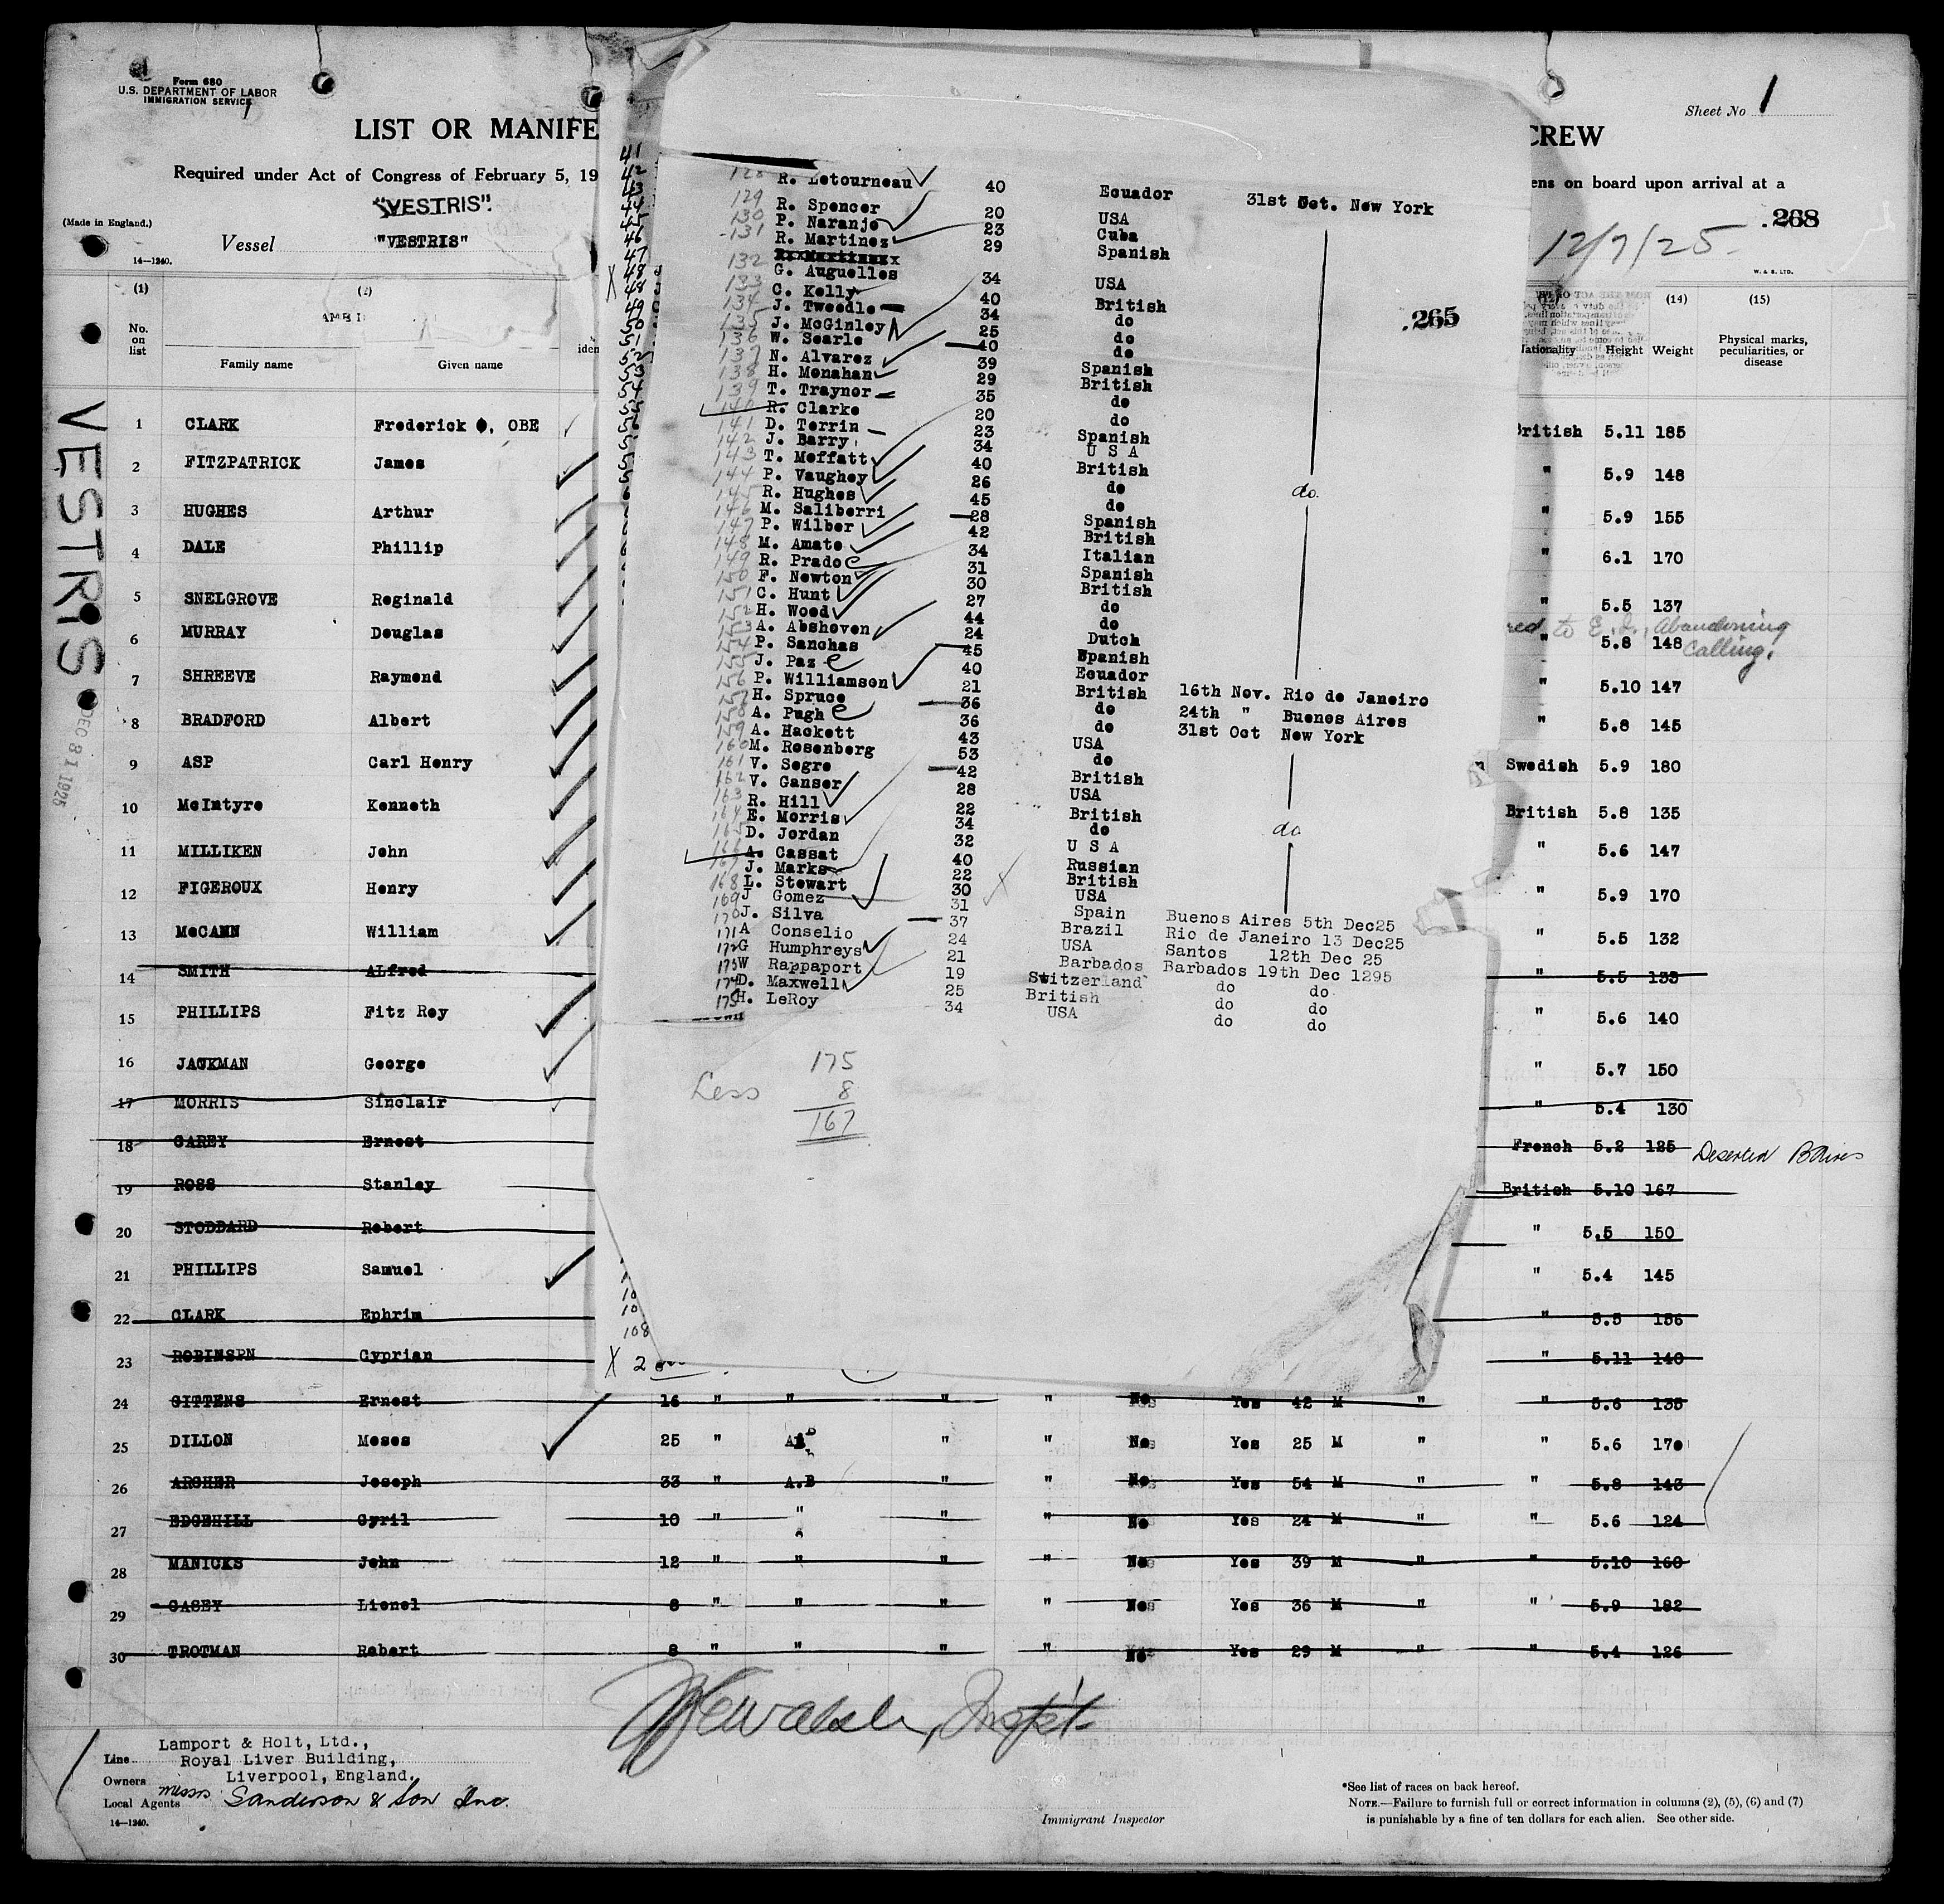 Form 680
U.S. DEPARTMENT OF LABOR
IMMIGRATION SERVICE
Sheet No 1
LIST OR MANIFE
CREW
Required under Act of Congress of February 5, 19
ens on board upon arrival at a
"VESTRIS".
(Made in England.)
Vessel "VESTRIS"
14—1240.
.268
12/7/25
W. & S. LTD.
(1) (2) (14) (15)
No. on list
Family name Given name
Nationality Height Weight Physical marks, peculiarities, or disease
VESTRIS
DEC 31 1925
1 CLARK Frederick , OBE British 5.11 185
2 FITZPATRICK James " 5.9 148
3 HUGHES Arthur " 5.9 155
4 DALE Phillip " 6.1 170
5 SNELGROVE Reginald " 5.5 137
red to E.I., Abandoning
6 MURRAY Douglas " 5.8 148 Calling.
7 SHREEVE Raymond " 5.10 147
8 BRADFORD Albert " 5.8 145
9 ASP Carl Henry Swedish 5.9 180
10 McIntyre Kenneth British 5.8 135
11 MILLIKEN John " 5.6 147
12 FIGEROUX Henry " 5.9 170
13 McCANN William " 5.5 132
14 SMITH Alfred " 5.5 133
15 PHILLIPS Fitz Roy " 5.6 140
16 JACKMAN George " 5.7 150
17 MORRIS Sinclair " 5.4 130
18 CAREY Ernest French 5.2 125 Deserted BAires
19 ROSS Stanley British 5.10 167
20 STODDARD Robert " 5.5 150
21 PHILLIPS Samuel " 5.4 145
22 CLARK Ephrim " 5.5 156
23 ROBINSPN Cyprian " 5.11 140
24 GITTENS Ernest 16 " " " " No Yes 42 M " " 5.6 135
25 DILLON Moses 25 " " " No Yes 25 M " " 5.6 170
26 ARCHER Joseph 33 " A.B " " No Yes 54 M " " 5.8 143
27 EDGEHILL Cyril 10 " " " " No Yes 24 M " " 5.6 124
28 MANICKS John 12 " " " " No Yes 39 M " " 5.10 160
29 CASEY Lionel 8 " " " " No Yes 36 M " " 5.9 182
30 TROTMAN Robert 8 " " " " No Yes 29 M " " 5.4 126
41
42
43
44
45
46
47
48
49
50
51
52
53
54
108
.265
128 R. Letourneau 40 Ecuador 31st Oct. New York
129 R. Spencer 20 USA
130 P. Naranjo 23 Cuba
131 R. Martinez 29 Spanish
132 G. Auguelles 34 USA
133 C. Kelly 40 British
134 J. Tweedle 34 do
135 J. McGinley 25 do
136 W. Searle 40 do
137 N. Alvarez 39 Spanish
138 H. Monahan 29 British
139 T. Traynor 35 do
140 R. Clarke 20 do
141 D. Terrin 23 Spanish
142 J. Barry 34 U S A
143 T. Moffatt 40 British
144 P. Vaughey 26 do
145 R. Hughes 45 do
146 M. Saliberri 28 Spanish
147 P. Wilber 42 British
148 M. Amato 34 Italian
149 R. Prado 31 Spanish
150 F. Newton 30 British
151 C. Hunt 27 do
152 H. Wood 44 do
153 A. Abshoven 24 Dutch
154 P. Sanchas 45 Spanish
155 J. Paz 40 Ecuador
156 P. Williamson 21 British 16th Nov. Rio de Janeiro
157 H. Spruce 36 do 24th " Buenos Aires
158 A. Pugh 36 do 31st Oct New York
159 A. Hackett 43 USA
160 M. Rosenberg 53 do
161 V. Segre 42 British
162 V. Ganser 28 USA
163 R. Hill 22 British
164 E. Morris 34 do
165 D. Jordan 32 U S A
166 A. Cassat 40 Russian
167 J. Marks 22 British
168 L. Stewart 30 USA
169 J Gomez 31 Spain Buenos Aires 5th Dec25
170 J. Silva 37 Brazil Rio de Janeiro 13 Dec25
171 A Conselio 24 USA Santos 12th Dec 25
172 G Humphreys 21 Barbados Barbados 19th Dec 1295
173 W Rappaport 19 Switzerland do do
174 D. Maxwell 25 British do do
175 H. LeRoy 34 USA do do
do.
do
175
Less 8
167
Line Lamport & Holt, Ltd.,
Royal Liver Building,
Owners Liverpool, England.
Local Agents Messrs Sanderson & Son Inc.
14—1240.
Immigrant Inspector
*See list of races on back hereof.
NOTE.—Failure to furnish full or correct information in columns (2), (5), (6) and (7)
is punishable by a fine of ten dollars for each alien. See other side.